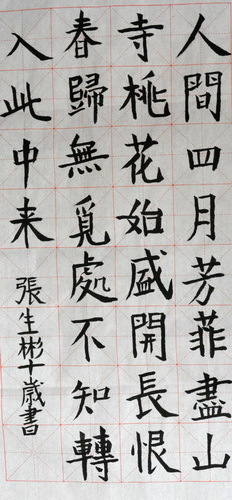 人間四月芳菲盡山
寺桃花始盛開長恨
春歸無覓處不知轉
入此中来
張生彬十歲書